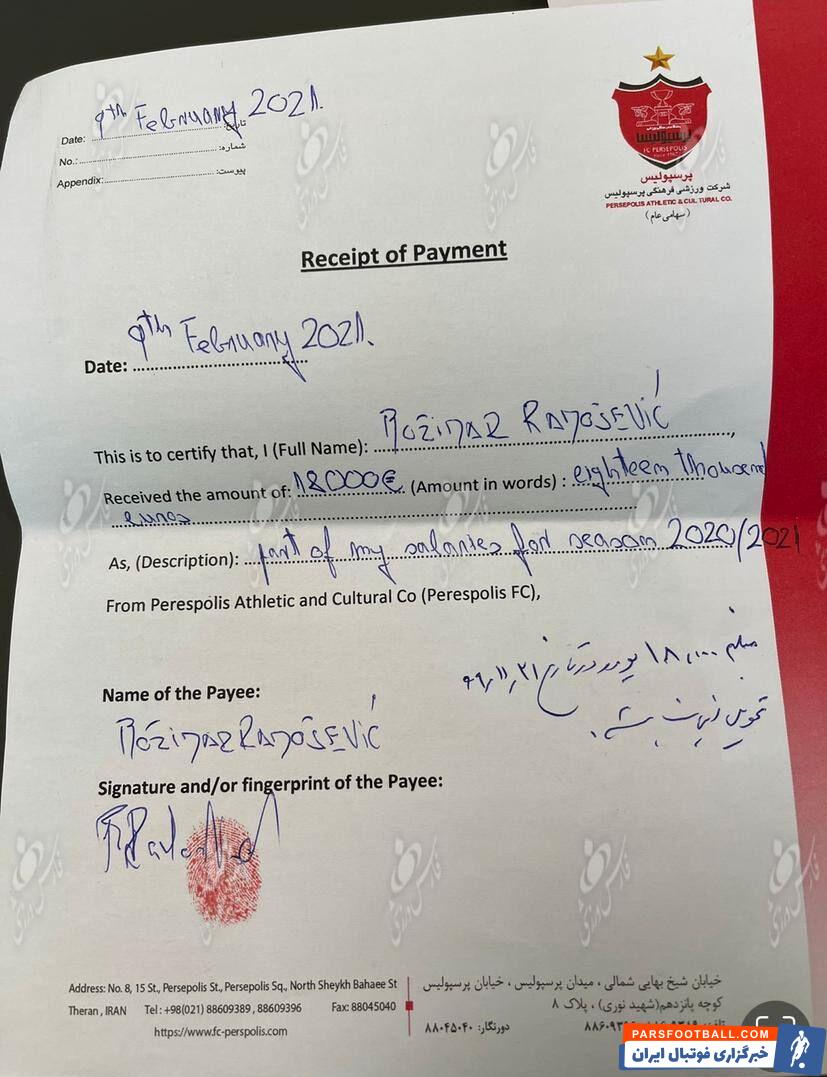 9th February 2021.
Date: تاریخ:
No.: شماره:
Appendix: پیوست:
پرسپولیس
FC PERSEPOLIS
پرسپولیس
شرکت ورزشی فرهنگی پرسپولیس
PERSEPOLIS ATHLETIC & CULTURAL CO.
(سهامی عام)
Receipt of Payment
Date: 9th February 2021.
This is to certify that, I (Full Name): BOŽIDAR RADOŠEVIĆ,
Received the amount of: 18000€ (Amount in words) : eighteen thousand
euros
As, (Description): part of my salaries for season 2020/2021
From Perespolis Athletic and Cultural Co (Perespolis FC),
مبلغ ۱۸,۰۰۰ یورو در تاریخ ۹۹,۱۱,۲۱
تحویل
Name of the Payee:
BOŽIDAR RADOŠEVIĆ
Signature and/or fingerprint of the Payee:
Address: No. 8, 15 St., Persepolis St., Persepolis Sq., North Sheykh Bahaee St
Theran , IRAN Tel : +98(021) 88609389 , 88609396 Fax: 88045040
https://www.fc-perspolis.com
خیابان شیخ بهایی شمالی ، میدان پرسپولیس ، خیابان پرسپولیس
کوچه پانزدهم(شهید نوری) ، پلاک ۸
دورنگار: ۸۸۰۴۵۰۴۰
PARSFOOTBALL.COM
خبرگزاری فوتبال ایران
فارس ورزشی